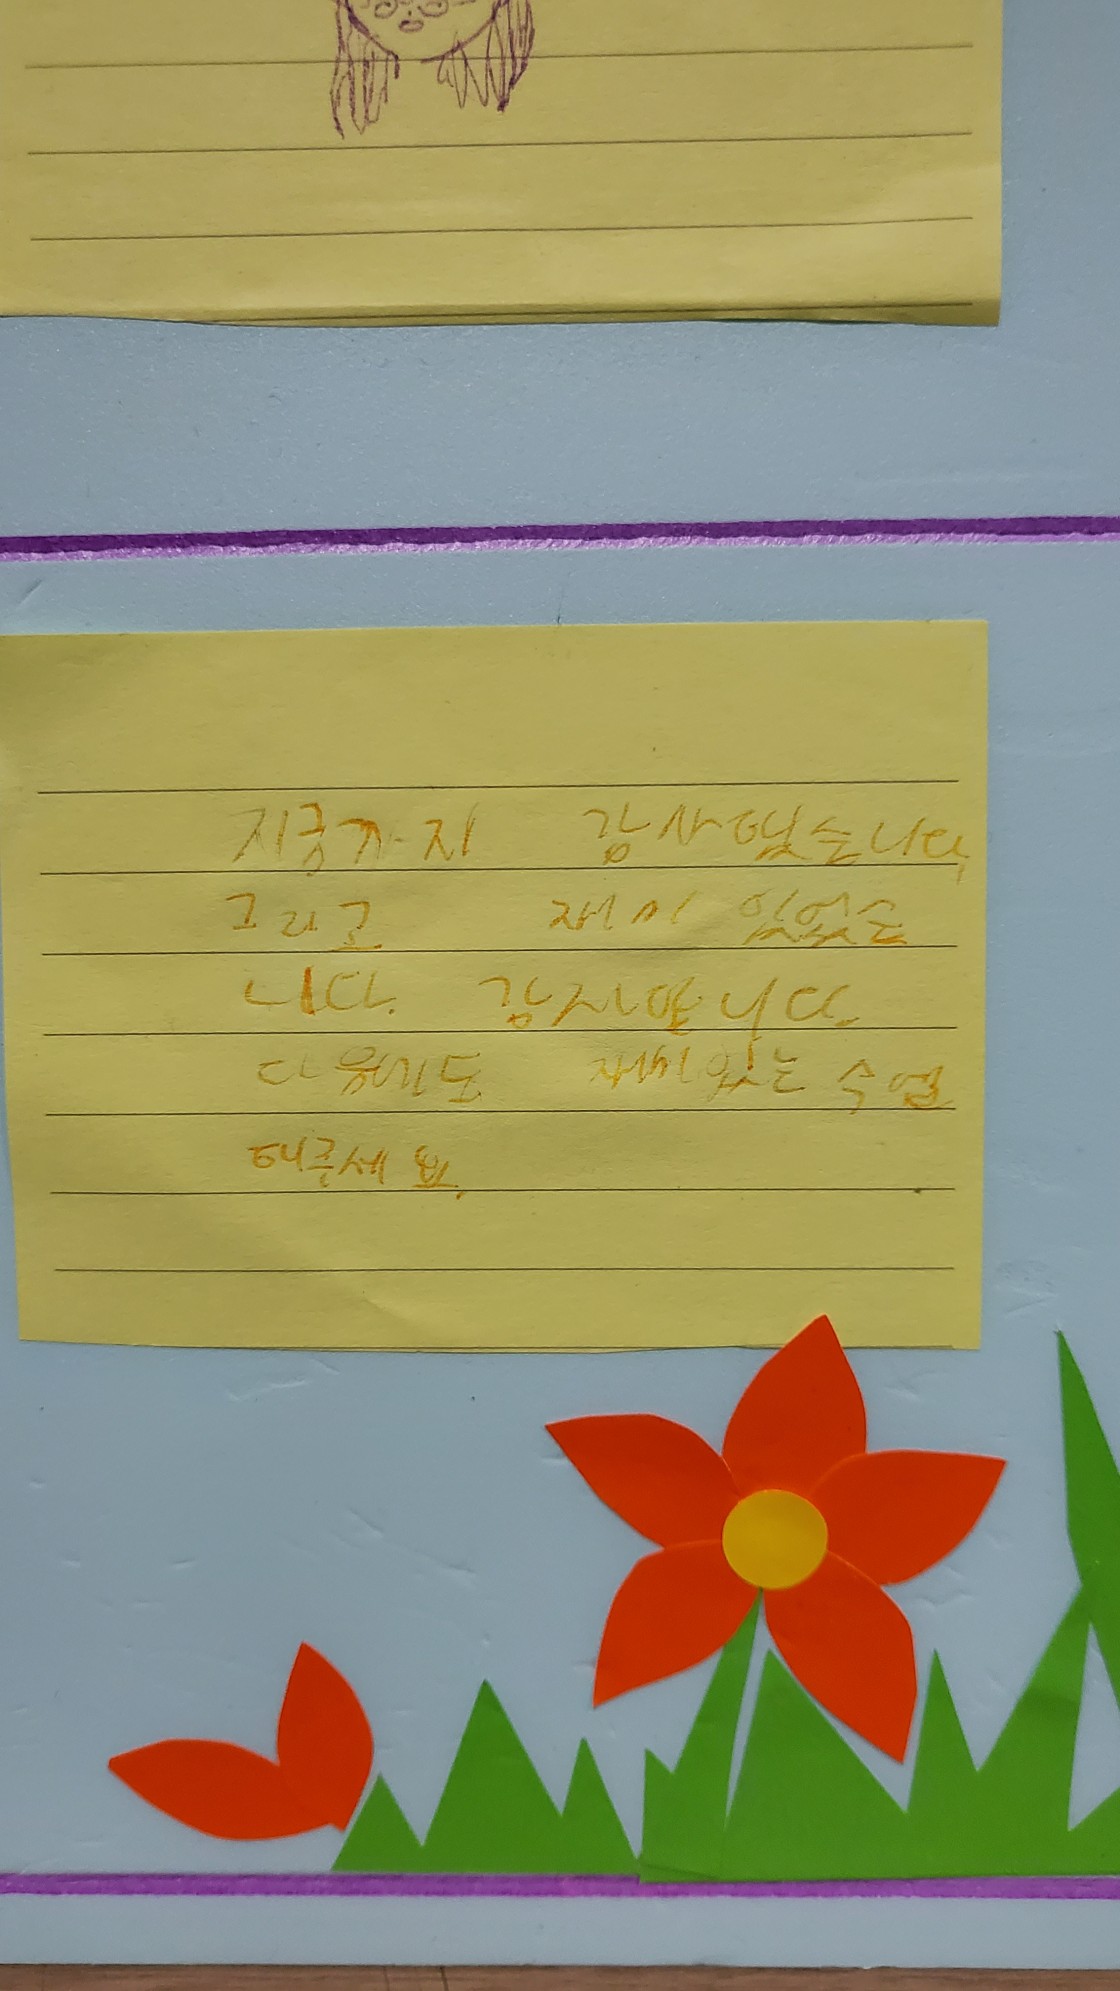 지금까지 감사했습니다
그리고 재미 있었습
니다. 감사합니다.
다음에도 재미있는 수업
해주세요.